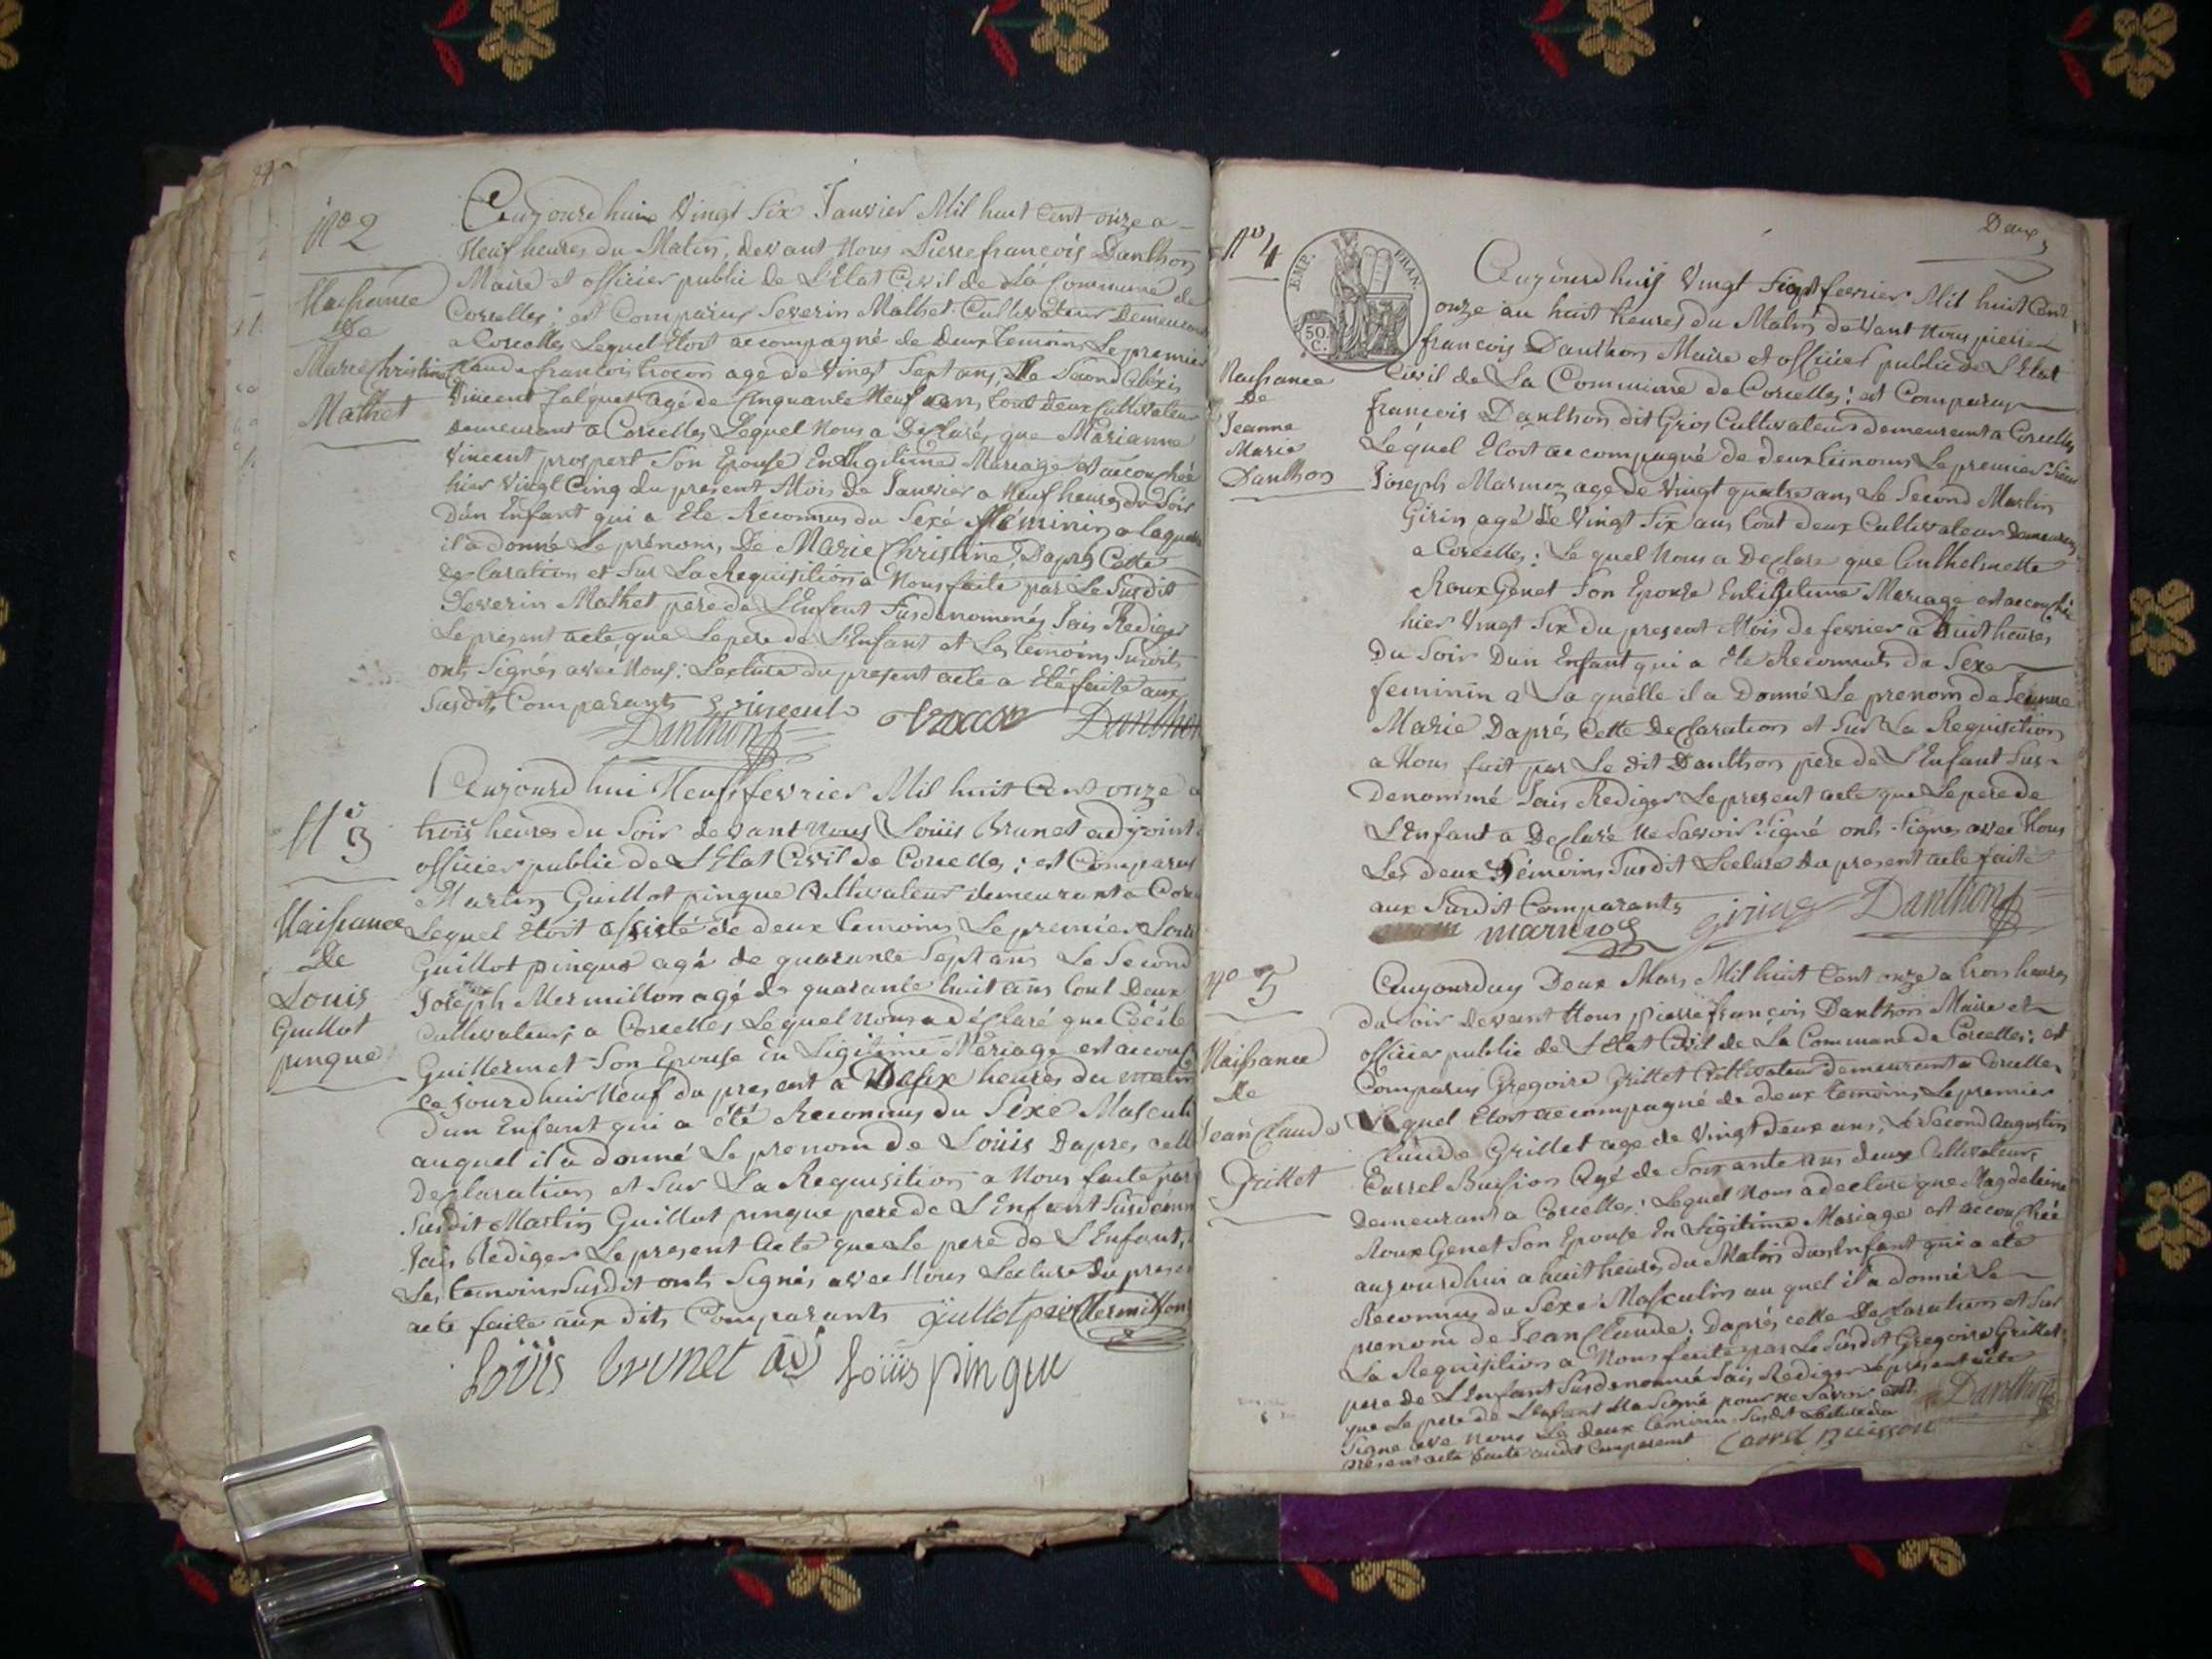 N° 2
Naissance
De
Marie Christine
Mathet
Aujourdhuie Vingt Six Janvier Mil huit Cent onze a
Neuf heures du Matin, devant Nous Pierre françois Danthon
Maire et officier public de L'Etat Civil de La Commune de
Corcelles; est Comparus Severin Mathet Cultivateur Demeurant
a Corcelles Lequel Etoit accompagné de Deux temoins Le premier
Claude francois trocon agé de Vingt Sept ans, Le Second Alexis
Vincent Jalquet agé de Cinquante Neuf ans, tout deux Cultivateur
demeurant a Corcelles Lequel Nous a Déclaré, que Marianne
Vincent prospert Son Epouse En Legitime Mariage est accouchée
hier Vingt Cinq du present Mois de Janvier a Neuf heures du Soir
Dún Enfant qui a Eté Reconnus du Sexé féminin a laquelle
il a donné Le prénom, De Marie Christine, Daprés Cette
declaration et Sur La Requisition a Nous faite par Le Susdit
Severin Mathet pere de L'Enfent Susdenommés Jais Rediger
Le present acte que Le pere de L'Enfant et Les temoins Susdits
onts Signés avec Nous: Lecture du present acte a Eté faite aux
Susdits Comparants vincent trocon Danthon
Danthon
N° 3
Naissance
De
Louis
Guillot
pingue
Aujourdhui Neuf fevrier Mil huit Cent onze a
trois heures du Soir devant nous Louis Brunet adjoint
officier public de L'Etat Civil de Corcelles; est Comparus
Martin Guillot pingue Cultivateur demeurant a
Lequel Etoit assisté de deux temoins Le premier
Guillot pingue agé de quarante Sept ans Le Second
Joseph Mermillon agé de quarante huit ans tout Deux
Cultivateur; a Corcelles Lequel Nous a déclaré que Cécile
Guillermet Son Epouse En Legitime Mariage est accouf
Ce jourdhui Neuf du present a Deux heures du matin
dun Enfant qui a été Reconnus du Sexe Masculi
auquel il a donné Le prenom de Louis Dapres cette
declaration et Sur La Requisition a Nous faite par
Susdit Martin Guillot pingue pere de L'Enfant
Jais Rediger Le present Acte que Le pere de L'Enfant,
Les temoins Susdit onts Signés avec Nous Lecture du prese
acte faite aux dits Comparants Guillot Mermillon
Louis brunet adj Louis pingue
Deux
N° 4
EMP. FRAN.
50
C.
Naissance
De
Jeanne
Marie
Danthon
Aujourdhuij Vingt Sept fevrier Mil huit Cent
onze au huit heures du Matin devant Nous pierre
francois Danthon Maire et officier public de L'Etat
Civil de La Commune de Corcelles; est Comparus
françois Danthon dit Gros Cultivateur demeurant a Corcelles
Lequel Etoit accompagné de deux temoins Le premier
Joseph Marmoz agé de Vingt quatre ans Le Second Martin
Girin agé de Vingt Six ans tout deux Cultivateur demeurant
a Corcelles; Lequel Nous a Declaré que Anthelmette
Roux Genet Son Epouse En Legitime Mariage est accouchée
hier Vingt Six du present Mois de fevrier a huit heures
Du Soir Dun Enfant qui a Eté Reconnuts du Sexe
feminin a La quelle il a Donné Le prenom de Jeanne
Marie Daprés Cette Declaration et Sur La Requisition
a Nous fait par Le dit Danthon pere de L'Enfant Sus
Denommé Jais Rediger Le present acte que Le pere de
L'Enfant a Declaré Ne Savoir Signé onts Signes avec Nous
Les deux Témoins Susdit Lecture du present acte faite
aux Susdit Comparants girin Danthon
marmoz
N° 5
Naissance
De
Jean Claude
Grillet
Aujourduy Deux Mars Mil huit Cent onze a trois heures
du Soir devant Nous pierre françois Danthon Maire et
officier public de L'Etat Civil de La Commune de Corcelles; est
Comparus Gregoire Grillet Cultivateur demeurant a Corcelles
Lequel Etoit accompagné de deux temoins, Le premier
Claude Grillet agé de Vingt deux ans, Le Second Augustin
Carrel Buision Agé de Soixante ans deux Cultivateur,
Demeurant a Corcelles; Lequel Nous a declaré que Magdelaine
Roux Genet Son Epouse En Legitime Mariage est accouchée
aujourdhui a huit heures du Matin dun Enfant qui a eté
Reconnus du Sexe Masculin au quel il a donné Le
prenom de Jean Claude; Daprés cette Declaration et Sur
La Requisition a Nous faite par Le Susdit Gregoire Grillet
pere de L'Enfant Susdenommé Jais Rediger Le present acte
que Le pere de L'Enfant Na Signé pour ne Savoir ont
Signe ave nous Les deux temoins Susdit Lecture du Danthon
present acte faite audit Comparent Carrel buisson